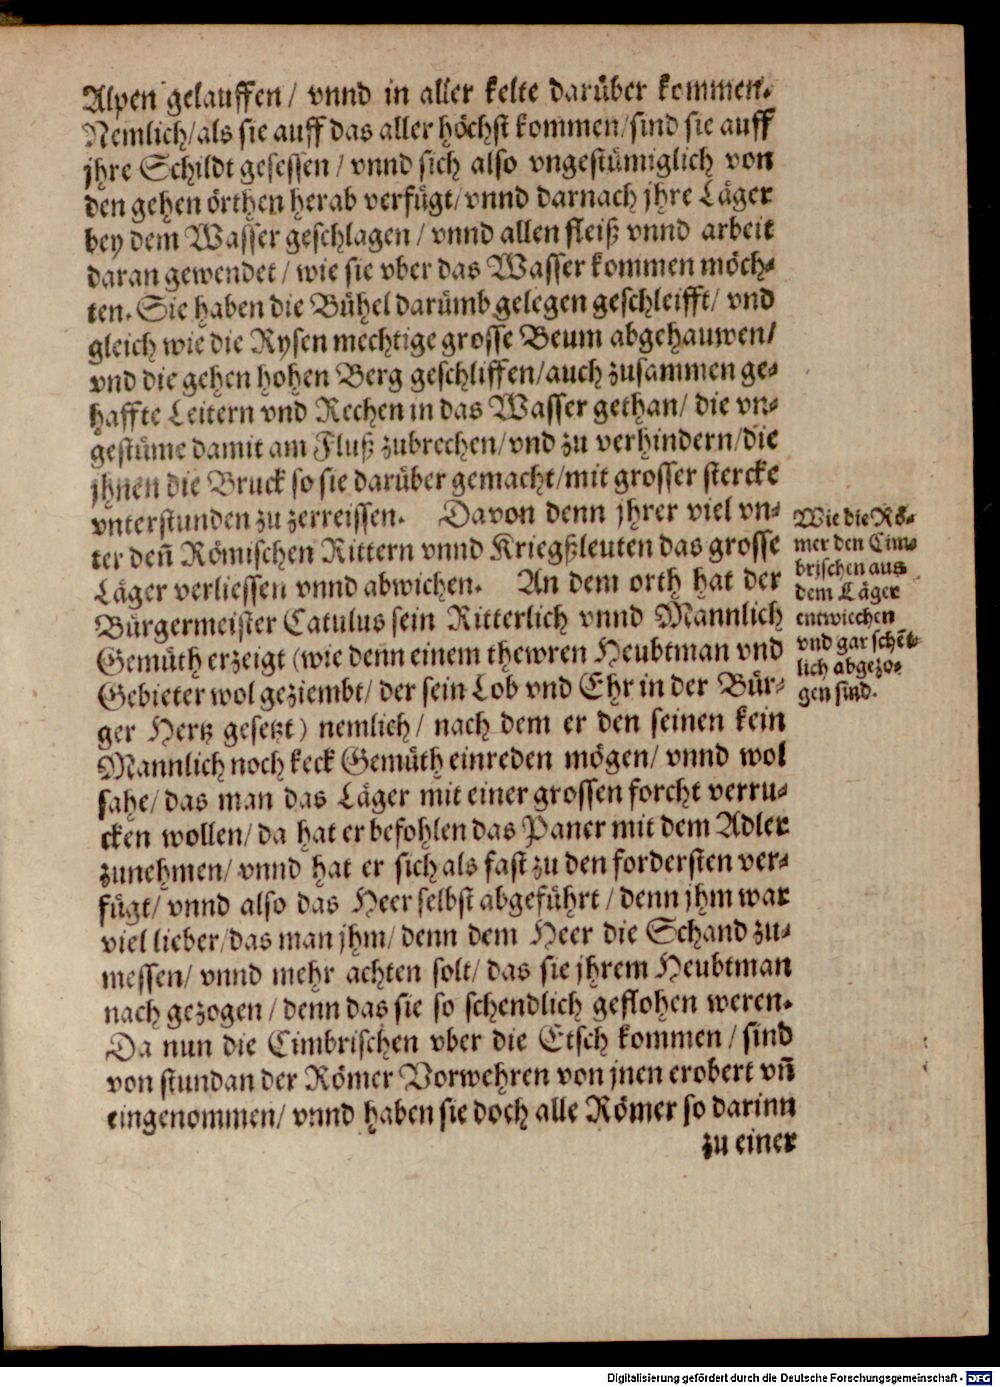 Alpen gelauffen / vnnd in aller kelte darüber kommen.
Nemlich/als sie auff das aller höchst kommen/sind sie auff
jhre Schildt gesessen / vnnd sich also vngestümiglich von
den gehen örthen herab verfügt/vnnd darnach jhre Läger
bey dem Wasser geschlagen / vnnd allen fleiß vnnd arbeit
daran gewendet / wie sie vber das Wasser kommen möch-
ten. Sie haben die Bühel darümb gelegen geschleifft/ vnd
gleich wie die Rysen mechtige grosse Beum abgehauwen/
vnd die gehen hohen Berg geschliffen/auch zusammen ge-
haffte Leitern vnd Rechen in das Wasser gethan/ die vn-
gestüme damit am Fluß zubrechen/vnd zu verhindern/die
jhnen die Bruck so sie darüber gemacht/mit grosser stercke
vnterstunden zu zerreissen. Davon denn jhrer viel vn-
ter deñ Römischen Rittern vnnd Kriegßleuten das grosse
Läger verliessen vnnd abwichen. An dem orth hat der
Bürgermeister Catulus sein Ritterlich vnnd Mannlich
Gemüth erzeigt (wie denn einem thewren Heubtman vnd
Gebieter wol geziembt/ der sein Lob vnd Ehr in der Bür-
ger Hertz gesetzt) nemlich/ nach dem er den seinen kein
Mannlich noch keck Gemüth einreden mögen/ vnnd wol
sahe/ das man das Läger mit einer grossen forcht verru-
cken wollen/ da hat er befohlen das Paner mit dem Adler
zunehmen/ vnnd hat er sich als fast zu den fordersten ver-
fügt/ vnnd also das Heer selbst abgeführt / denn jhm war
viel lieber/das man jhm/ denn dem Heer die Schand zu-
messen/ vnnd mehr achten solt/ das sie jhrem Heubtman
nach gezogen / denn das sie so schendlich geflohen weren.
Da nun die Cimbrischen vber die Etsch kommen / sind
von stundan der Römer Vorwehren von jnen erobert vñ
eingenommen/ vnnd haben sie doch alle Römer so darinn
zu einer
Wie die Rö-
mer den Cim-
brischen aus
dem Läger
entwichen
vnd gar schẽt-
lich abgezo-
gen sind.
Digitalisierung gefördert durch die Deutsche Forschungsgemeinschaft - DFG